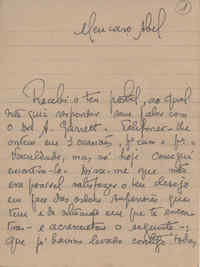 1
Meu caro Abel
Recebi o teu postal, ao qual
não quis responder sem falar com
o Dr. A. Garrett. Telefonei-lhe
ontem em 2 ocasiões, p'ra casa e p'ra
mas só hoje consegui
encontrá-lo. Disse-me que não
era possível satisfazer o teu desejo
em face das ordens superiores que
tem e da situação em que te encon-
tras - e acrescentou o seguinte -:
que já havias levado contigo todas